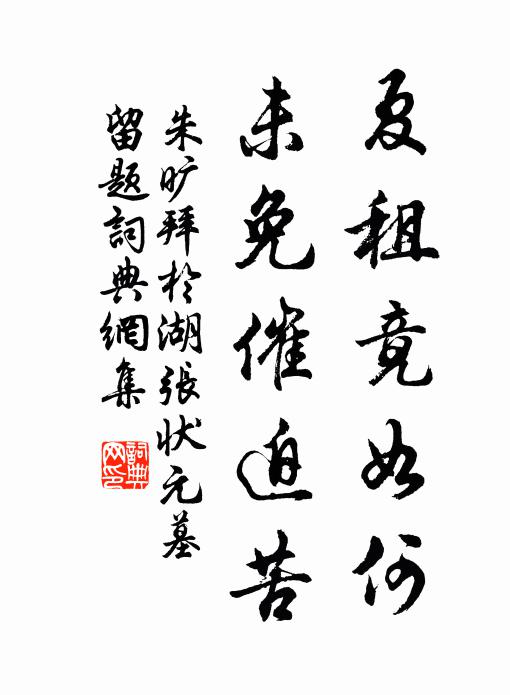 夏租竟如何
未免催迫苦
朱旷拜於湖張状元墓
留题詞典網集
詞典网印